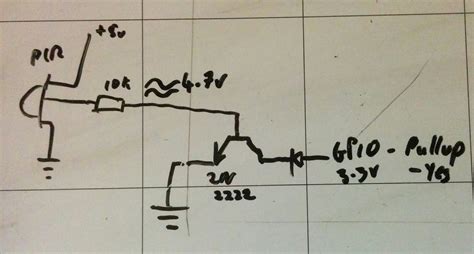 +5v
PIR
10k
≈ 4.7v
GPIO - Pullup
3.3v - Yes
2N
2222